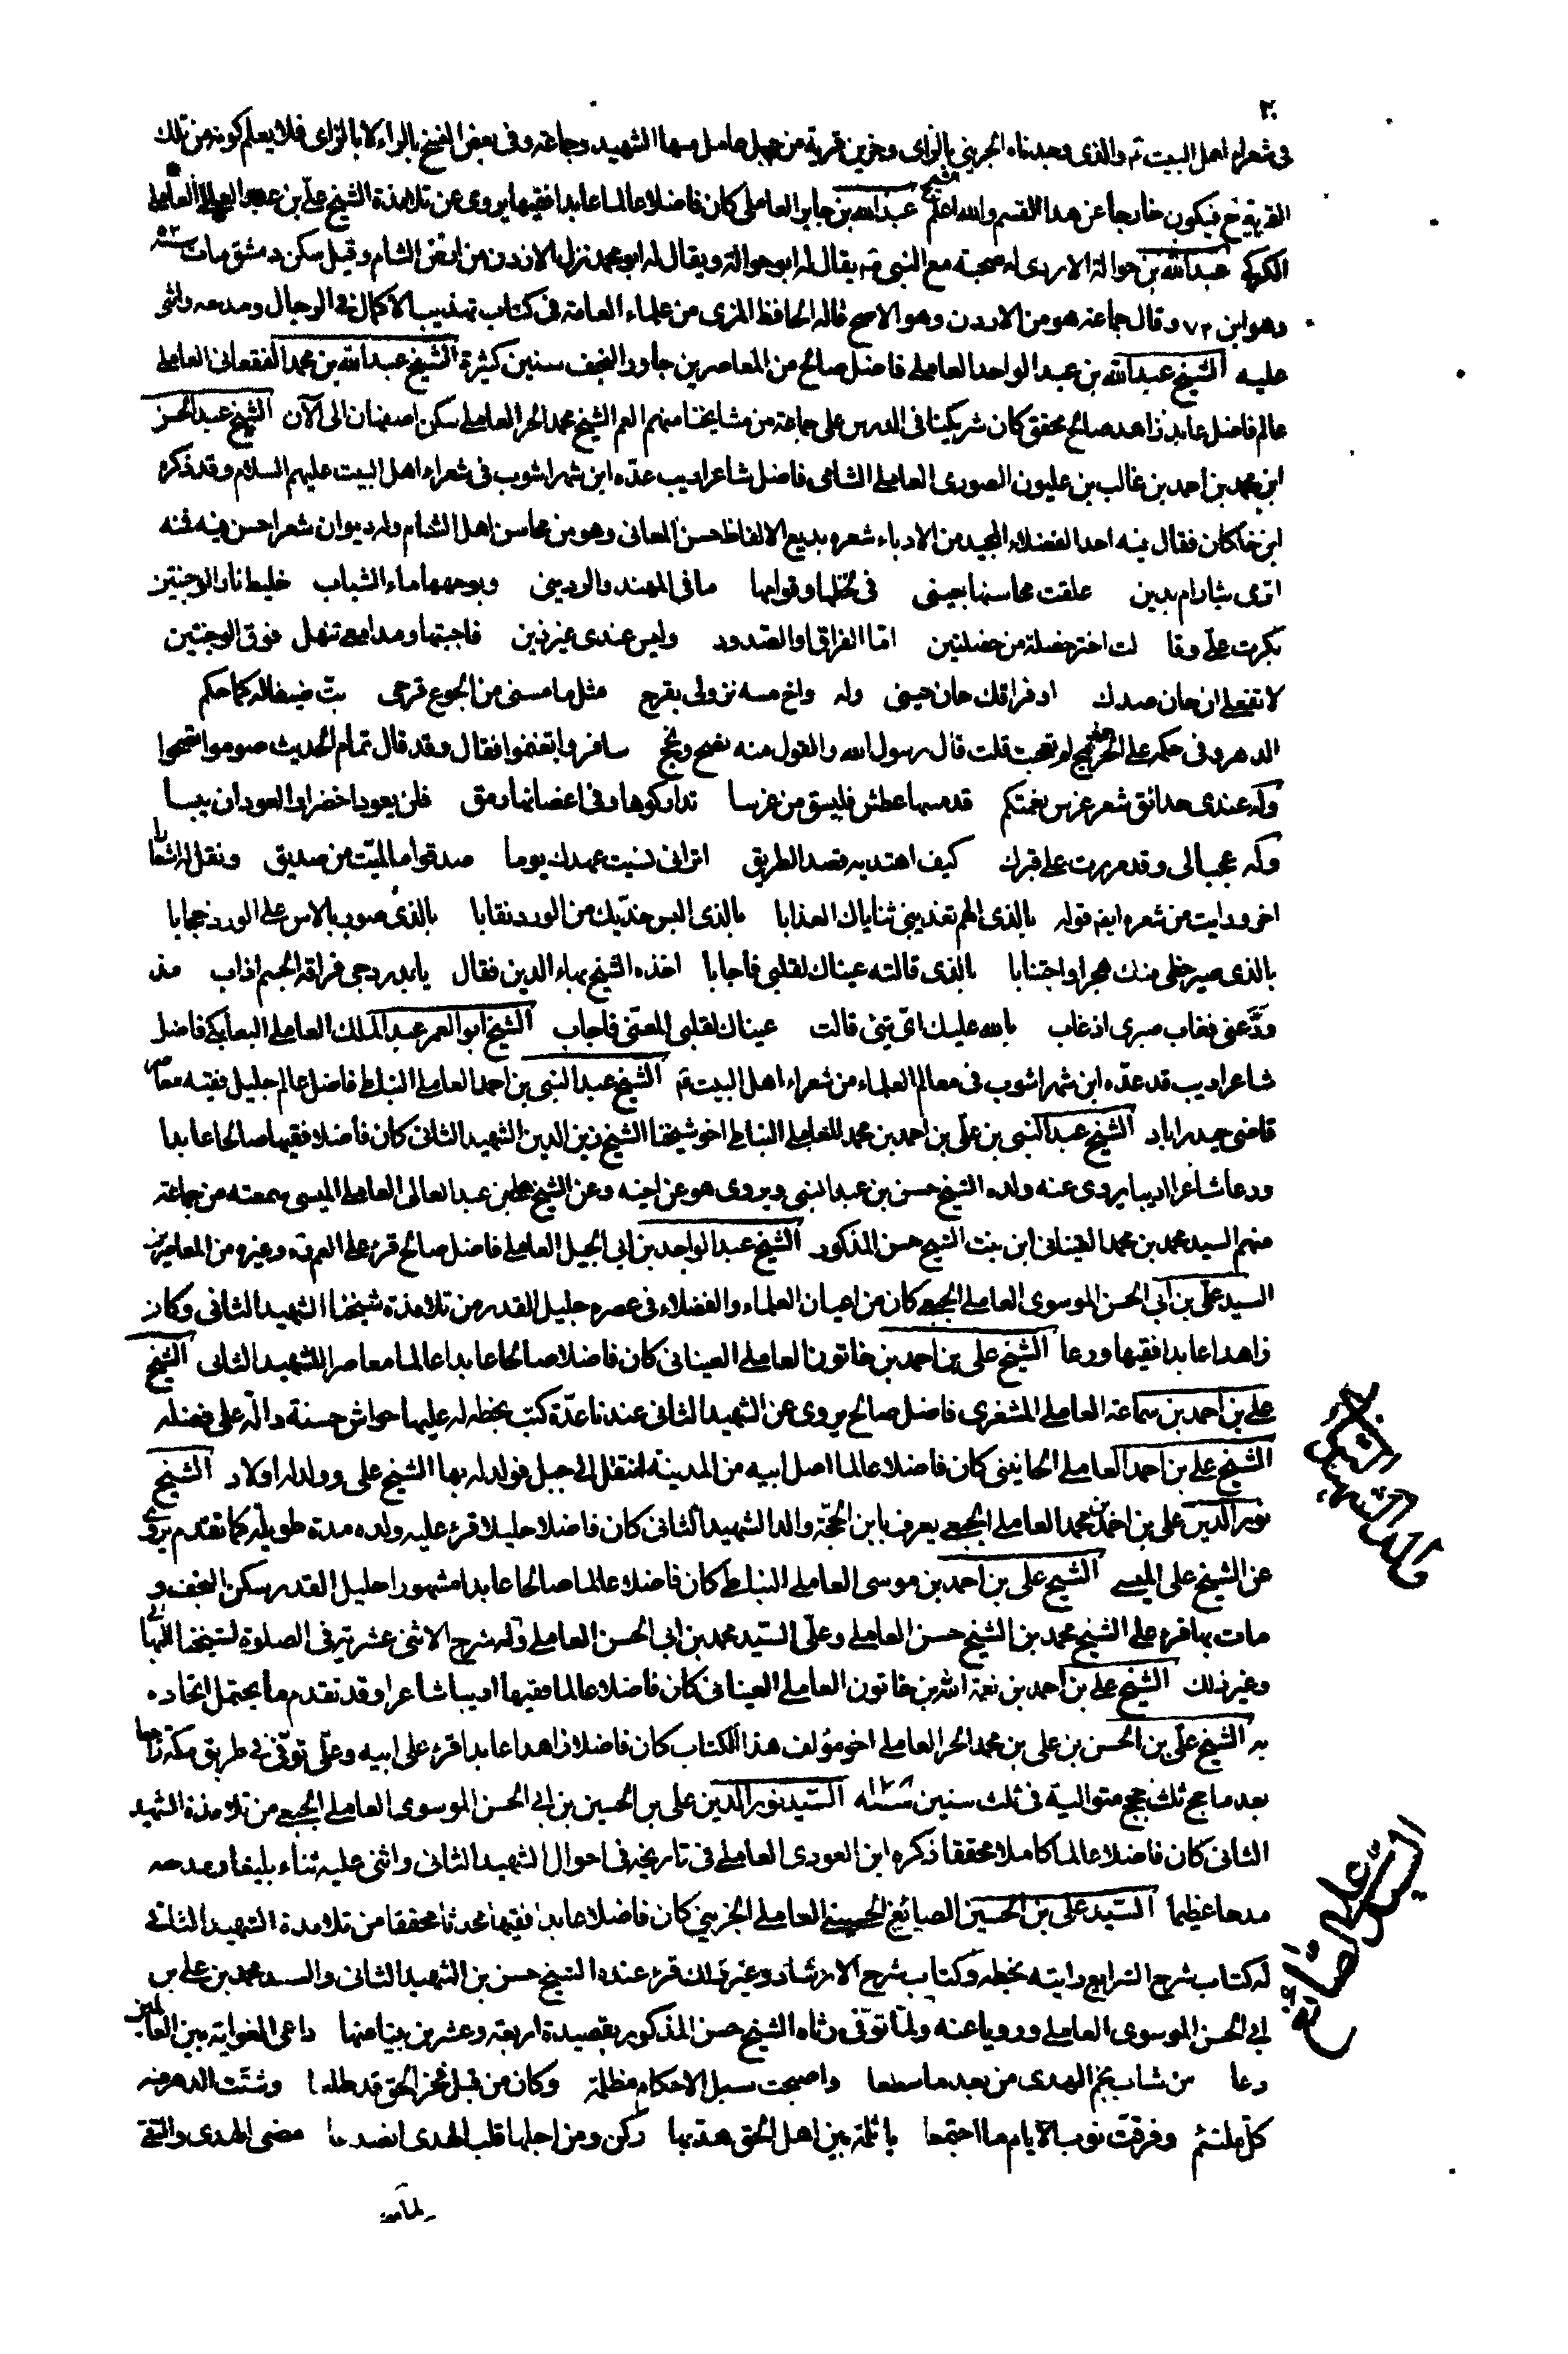 ٣٠
فى شعراء اهل البيت ع والذى وجدناه الجزينى بالزاى وجزين قرية من جبل عامل منها الشهيد وجماعة وفى بعض النسخ بالراء لا بالزاى فلا يعلم كونه من تلك
القرية خ فيكون خارجا عن هذا القسم والله اعلم الشيخ عبدالله بن جابر العاملى كان فاضلا عالما عابدا فقيها يروى عن تلامذة الشيخ على بن عبد العالى العاملى
الكركى عبدالله بن حوالة الازدى له صحبة مع النبى ص يقال له ابو حوالة ويقال له ابو محمد نزل الاردن من ارض الشام وقيل سكن دمشق مات سنة
وهو ابن ٧٢ وقال جماعة هو من الاردن وهو الاصح قاله الحافظ المزى من علماء العامة فى كتاب تهذيب الاكمال فى الرجال ومدحه واثنى
عليه الشيخ عبدالله بن عبد الواحد العاملى فاضل صالح من المعاصرين جاور النجف سنين كثيرة الشيخ عبدالله بن محمد الفقعانى العاملى
عالم فاضل عابد زاهد صالح محقق كان شريكنا فى الدرس على جماعة من مشايخنا منهم العم الشيخ محمد الحر العاملى سكن اصفهان الى الآن الشيخ عبد المحسن
ابن محمد بن احمد بن غالب بن غلبون الصورى العاملى الشامى فاضل شاعر اديب عده ابن شهراشوب فى شعراء اهل البيت عليهم السلام وقد ذكره
ابن خلكان فقال فيه احد الفضلاء المجيد من الادباء شعره بديع الالفاظ حسن المعانى وهو من محاسن اهل الشام وله ديوان شعر احسن فيه فمنه
اترى بثار ام بدين علقت محاسنها بعينى فى لحظها وقوامها ما فى المهند والردينى وبوجهها ماء الشباب خليط نار الوجنتين
بكرت على وقا لت اختر خصلة من خصلتين اما الفراق او الصدود وليس عندى غير ذين فاجبتها ومدامعى تنهل فوق الوجنتين
لا تفعلى ان حان صدك او فراقك حان حينى وله واخ مسه نزولى بقرح مثل ما مسنى من الجوع قرحى بت ضيفا له كما حكم
الدهر وفى حكمه على الحر قبح لم تغربت قلت قال رسول الله والقول منه نصح ونجح سافروا تغنموا فقال وقد قال تمام الحديث صوموا تصحوا
وله عندى حدائق شعر غرس نعمتكم قد مسها عطش فليسق من غرسا تداركوها وفى اغصانها رمق فلن يعود اخضرار العود ان يبسا
وله عجبا لى وقد مررت على قبرك كيف اهتديت قصد الطريق اترانى نسيت عهدك يوما صدقوا ما لميت من صديق ونقل له اشعارا
اخر ورايت من شعره ايضا قوله بالذى الهم تعذيبى ثناياك العذابا بالذى البس خديك من الورد نقابا بالذى صور بالآس على الورد حجابا
بالذى صير حظى منك هجرا واجتنابا بالذى قالته عيناك لقلبى فاجابا اخذه الشيخ بهاء الدين فقال يا بدر دجى فراقه الجسم اذاب مذ
ودعنى فغاب صبرى اذ غاب بالله عليك اى شئ قالت عيناك لقلبى المعنى فاجاب الشيخ ابو العمر عبد الملك العاملى البعلبكى فاضل
شاعر اديب قد عده ابن شهراشوب فى معالم العلماء من شعراء اهل البيت ع الشيخ عبد النبى بن احمد العاملى النباطى فاضل عالم جليل فقيه معاصر
قاضى حيدراباد الشيخ عبد النبى بن على بن احمد بن محمد العاملى النباطى اخو شيخنا الشيخ زين الدين الشهيد الثانى كان فاضلا فقيها صالحا عابدا
ورعا شاعرا اديبا يروى عنه ولده الشيخ حسن بن عبد النبى ويروى هو عن اخيه وعن الشيخ على بن عبد العالى العاملى الميسى سمعته من جماعة
منهم السيد محمد بن محمد العينانى ابن بنت الشيخ حسن المذكور الشيخ عبد الواحد بن ابى الجيل العاملى فاضل صالح قرء على العم ره وغيره من المعاصرين
السيد على بن ابى الحسن الموسوى العاملى الجبعى كان من اعيان العلماء والفضلاء فى عصره جليل القدر من تلامذة شيخنا الشهيد الثانى وكان
زاهدا عابدا فقيها ورعا الشيخ على بن احمد بن خاتون العاملى العينانى كان فاضلا صالحا عابدا عالما معاصرا للشهيد الثانى الشيخ
على بن احمد بن سماعة العاملى المشغرى فاضل صالح يروى عن الشهيد الثانى عندنا عدة كتب بخطه له عليها حواش حسنة دالة على فضله
الشيخ على بن احمد العاملى الحانينى كان فاضلا عالما اصل ابيه من المدينة انتقل الى جبل فولد له بها الشيخ على وولد له اولاد الشيخ
نور الدين على بن احمد بن محمد العاملى الجبعى يعرف بابن الحجة والد الشهيد الثانى كان فاضلا جليلا قرء عليه ولده مدة طويلة كما تقدم يروى
عن الشيخ على الميسى الشيخ على بن احمد بن موسى العاملى النباطى كان فاضلا عالما صالحا عابدا مشهورا جليل القدر سكن النجف و
مات بها قرء على الشيخ محمد بن الشيخ حسن العاملى وعلى السيد محمد بن ابى الحسن العاملى وله شرح الاثنى عشرية فى الصلوة لشيخنا البهائى
وغير ذلك الشيخ على بن احمد بن نعمة الله بن خاتون العاملى العينانى كان فاضلا عالما فقيها اديبا شاعرا وقد تقدم ما يحتمل اتحاده
به الشيخ على بن الحسن بن على بن محمد الحر العاملى اخو مؤلف هذا الكتاب كان فاضلا زاهدا عابدا قرء على ابيه وعلى توفى فى طريق مكة راجعا
بعد ما حج ثلث حجج متوالية فى ثلث سنين سنة السيد نور الدين على بن الحسين بن ابى الحسن الموسوى العاملى الجبعى من تلامذة الشهيد
الثانى كان فاضلا عالما كاملا محققا ذكره ابن العودى العاملى فى تاريخه فى احوال الشهيد الثانى واثنى عليه ثناء بليغا ومدحه
مدحا عظيما السيد على بن الحسين الصائغ الحسينى العاملى الجزينى كان فاضلا عابدا فقيها محدثا محققا من تلامذة الشهيد الثانى
له كتاب شرح الشرايع رايته بخطه وكتاب شرح الارشاد وغير ذلك قرء عنده الشيخ حسن بن الشهيد الثانى والسيد محمد بن على بن
ابى الحسن الموسوى العاملى ورويا عنه ولما توفى رثاه الشيخ حسن المذكور بقصيدة اربعة وعشرين بيتا منها داعى الغواية بين العالمين
دعا من شاب نجم الهدى من بعد ما سطعا واصبحت سبل الاحكام مظلمة وكان من قبل فجر الحق قد طلعا وشتت الدهر منه
كل ملتئم وفرقت نوب الايام ما اجتمعا يا ثلمة بين اهل الحق هد بها ركن ومن اجلها قلب الهدى انصدعا مضى الهدى والتقى
لما
والد الشهيد الشيخ
السيد على الصائغ